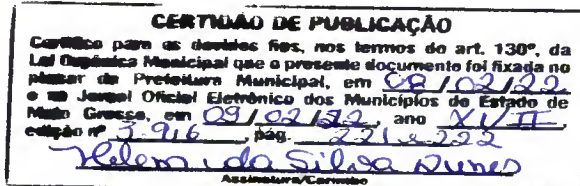 CERTIDÃO DE PUBLICAÇÃO
Certifico para os devidos fins, nos termos do art. 130º, da
Lei Orgânica Municipal que o presente documento foi fixada no
placar da Prefeitura Municipal, em 08/02/22
e no Jornal Oficial Eletrônico dos Municípios do Estado de
Mato Grosso, em 09/02/22, ano XVII,
edição nº 3.916, pág. 221 e 222
Helem da Silva Nunes
Assinatura/Carimbo